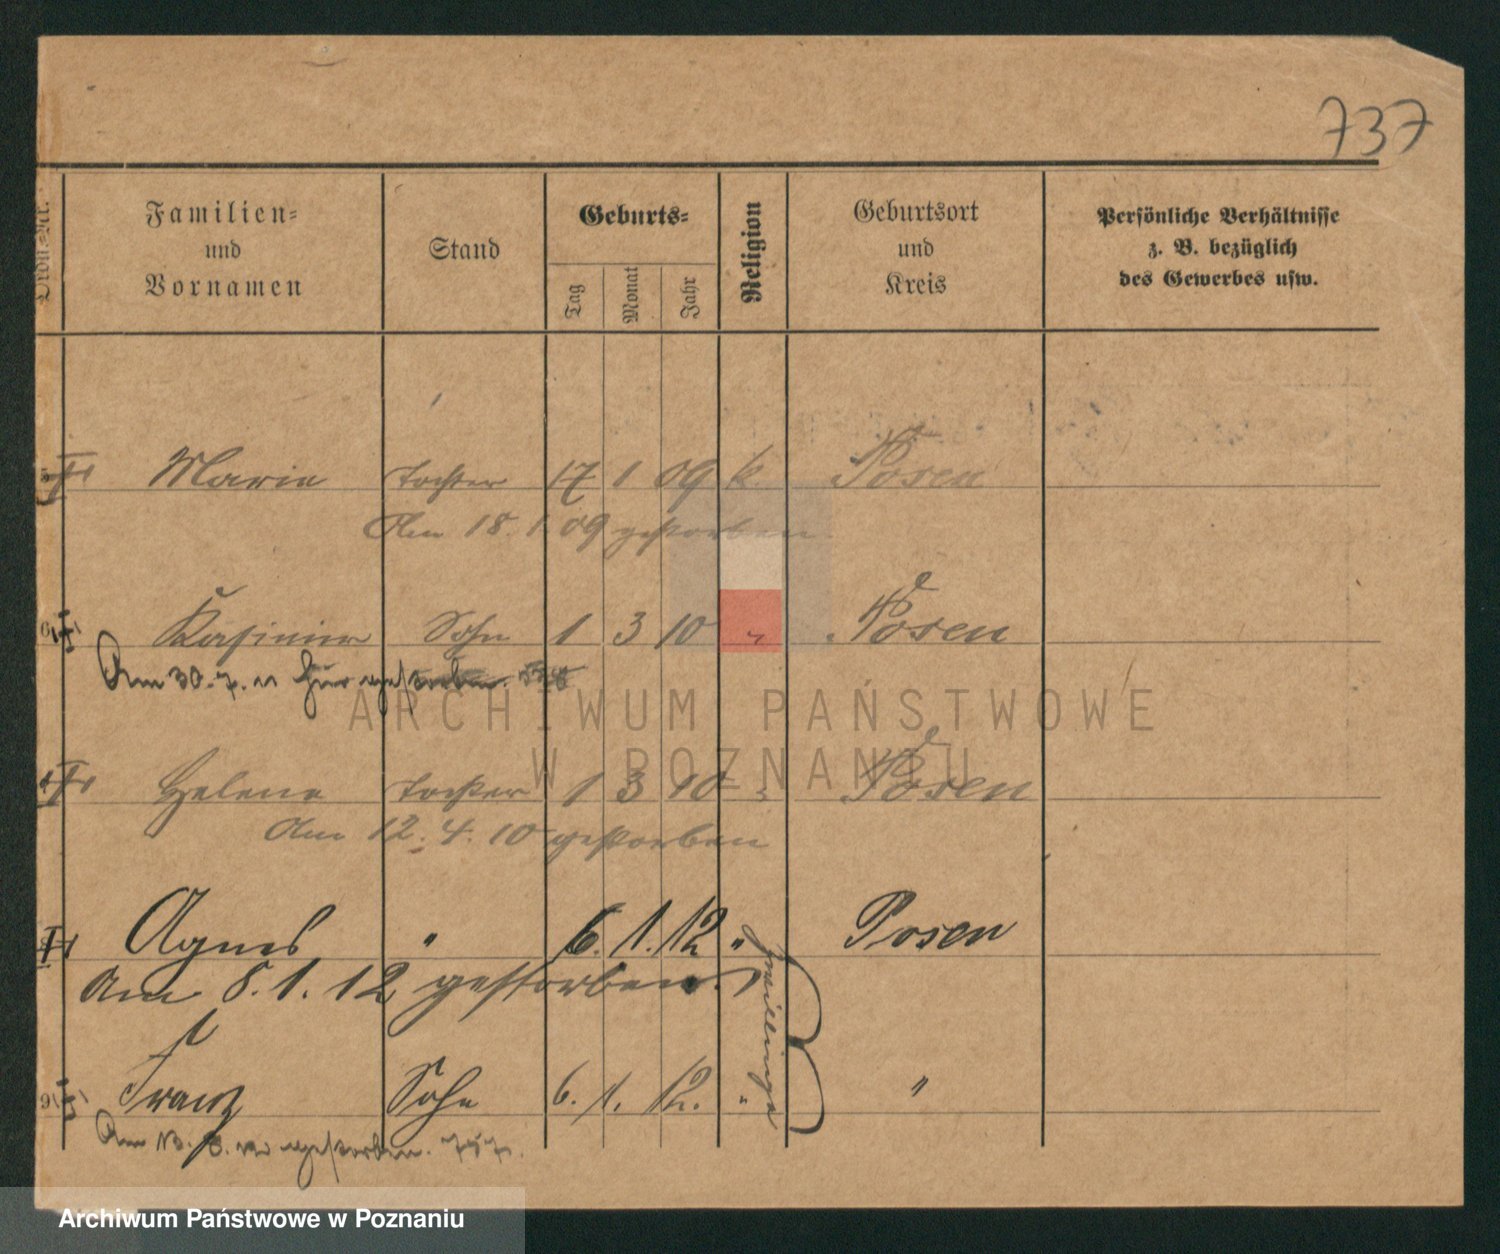 737
Ordn=Nr.
Familien=
und
Vornamen
Stand
Geburts=
Tag
Monat
Jahr
Religion
Geburtsort
und
Kreis
Persönliche Verhältnisse
z. B. bezüglich
des Gewerbes usw.
Marie Tochter 17 1 09 k. Posen
Am 18. 1. 09 gestorben
6 Kasimir Sohn 1 3 10 " Posen
Am 30. 7. 11 hier gestorben.
Helene Tochter 1 3 10 " Posen
Am 12. 4. 10 gestorben
Agnes " 6. 1. 12 " Posen
Am 8. 1. 12 gestorben.
Zwillinge
9 Franz Sohn 6. 1. 12. " "
Am 13. 8. 12 gestorben.
ARCHIWUM PAŃSTWOWE
W POZNANIU
Archiwum Państwowe w Poznaniu